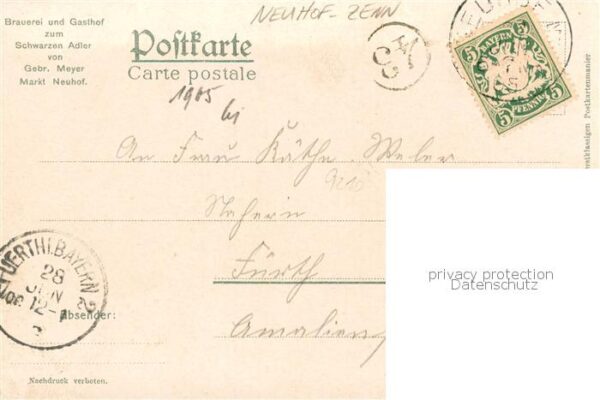 Brauerei und Gasthof
zum
Schwarzen Adler
von
Gebr. Meyer
Markt Neuhof.
NEUHOF-ZENN
Postkarte
Carte postale
1905
BAYERN
5 5
PFENNIG
An Frau Käthe Weber
Näherin
Fürth
Amalien
FUERTH I. BAYERN 2
28
JUN
12-1
Absender:
Nachdruck verboten.
privacy protection
Datenschutz
erstklassigen Postkartenmanier